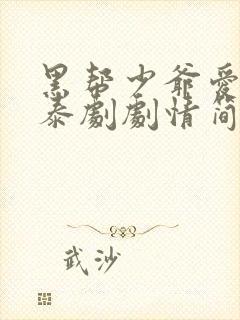 黑帮少爷爱
泰剧剧情简
武沙